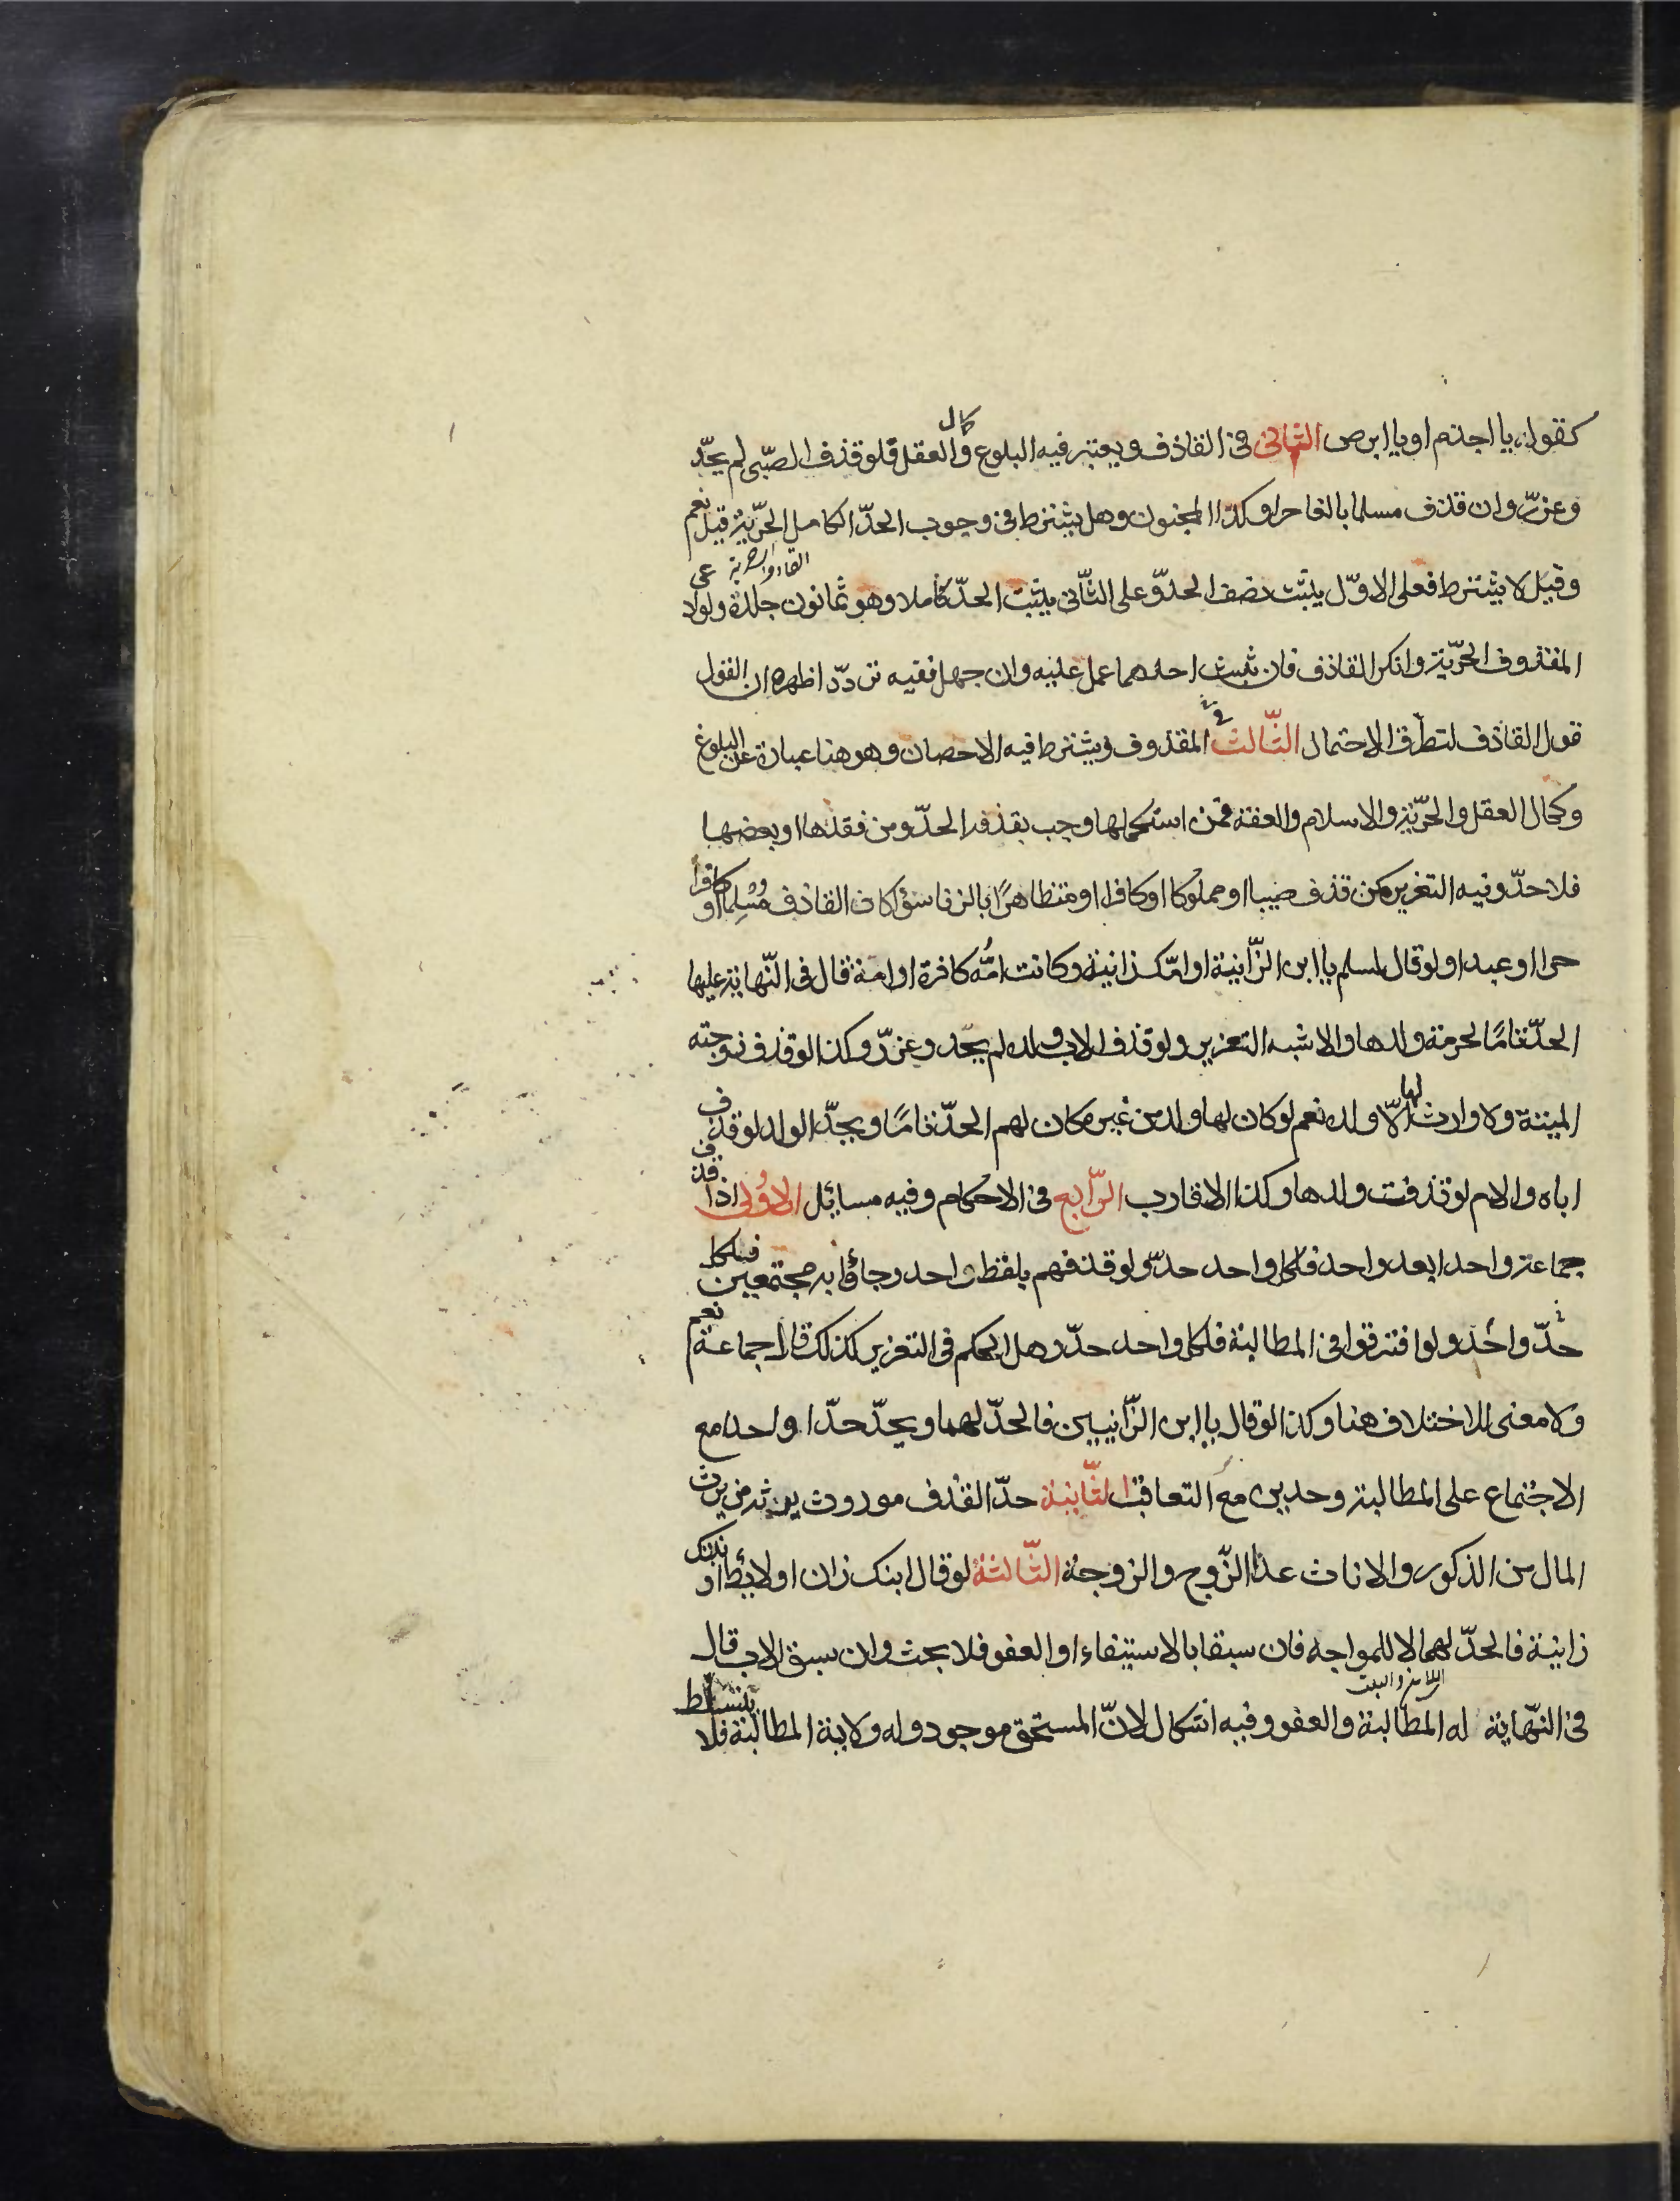 كقوله يا اجذم او يا ابرص الثانى فى القاذف ويعتبر فيه البلوغ وكمال العقل فلو قذف الصبى لم يحدّ
وعزّر وان قذف مسلما بالغا حرا وكذا المجنون وهل يشترط فى وجوب الحدّ الكامل الحرّية قيل نعم
وقيل لا يشترط فعلى الاوّل يثبت نصف الحدّ وعلى الثّانى يثبت الحدّ كاملا وهو ثمانون جلدة ولو ادعى
المقذوف الحرّية وانكر القاذف فان ثبت احدهما عمل عليه وان جهل ففيه تردّد اظهره ان القول
قول القاذف لتطرّق الاحتمال الثّالث فى المقذوف ويشترط فيه الاحصان وهو هنا عبارة عن البلوغ
وكمال العقل والحرّية والاسلام والعفة فمن استكملها وجب بقذفه الحدّ ومن فقدها او بعضها
فلا حدّ وفيه التعزير كمن قذف صبيا او مملوكا او كافرا او متظاهرًا بالزنا سؤا كان القاذف مُسْلِما او كافرا
حرا او عبدا ولو قال لمسلم يا ابن الزّانية او امّك زانية وكانت امُّه كافرة او امة قال فى النّهاية عليها
الحدّ تامًا لحرمة ولدها والاشبه التعزير ولو قذف الاب ولده لم يحد وعزّر وكذا لو قذف زوجته
الميتة ولا وارث لها الّا ولده نعم لو كان لها ولد من غيره كان لهم الحدّ تامًا ويحدّ الولد لو قذف
اباه والام لو قذفت ولدها وكذا الاقارب الرّابع فى الاحكام وفيه مسائل الاولى اذا قذف
جماعة واحدا بعد واحد فلكل واحد حدّ ولو قذفهم بلفظ واحد وجاؤا به مجتمعين فللكل
حدّ واحد ولو افترقوا فى المطالبة فلكل واحد حدّ وهل الحكم فى التعزير كذلك قال جماعة نعم
ولا معنى للاختلاف هنا وكذا لو قال يا ابن الزّانيين فالحدّ لهما ويحدّ حدّا واحدا مع
الاجتماع على المطالبة وحدين مع التعاقب الثّانية حدّ القذف موروث يرثه من يرث
المال من الذكور والاناث عدا الزّوج والزوجة الثّالثة لو قال ابنك زان او لائط او بنتك
زانية فالحدّ لهما لا للمواجه فان سبقا بالاستيفاء او العفو فلا بحث وان سبق الاب قال
فى النّهاية له المطالبة والعفو وفيه اشكال لانّ المستحق موجود وله ولاية المطالبة فلا يتسلّط